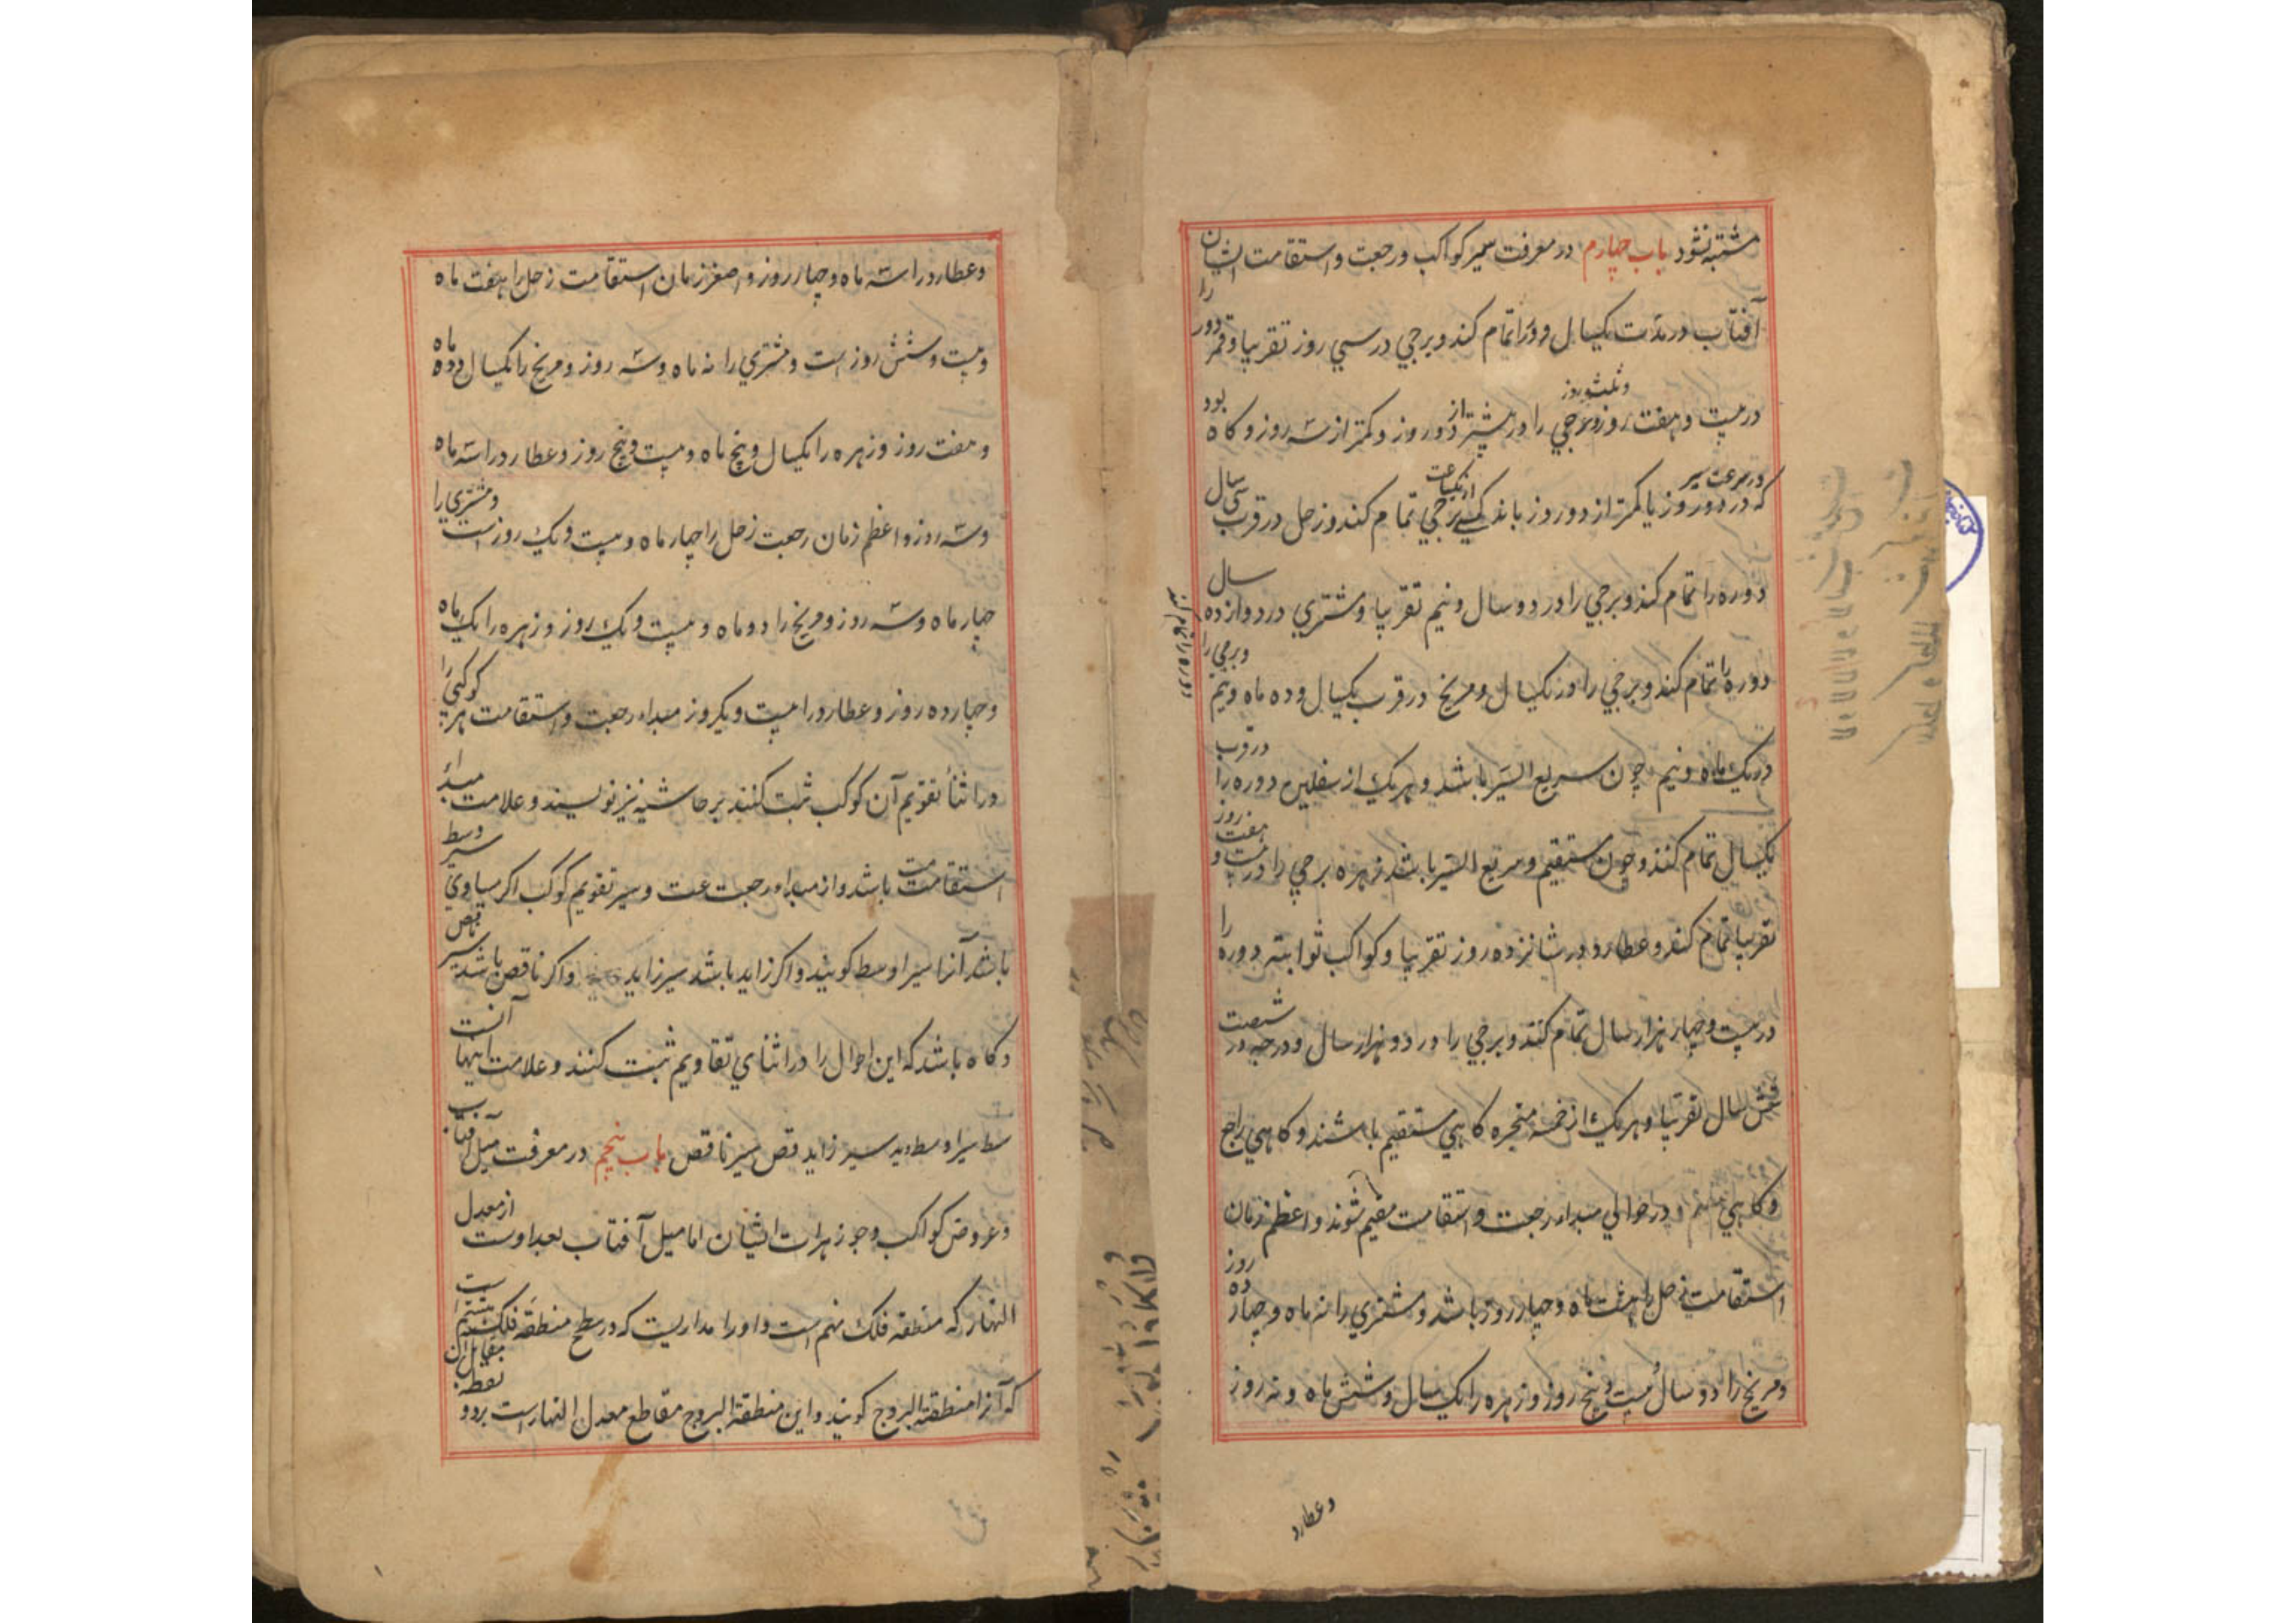 مشتبه نشود باب چهارم در معرفت سیر کواکب و رجعت و استقامت ایشان را
آفتاب در مدت یکسال دور را تمام کند و برجی در سی روز تقریبا و قمر دور
در بیست و هفت روز و ثلث روز و برجی را در بیشتر از دو روز و کمتر از سه روز و کاه بود
که در سرعت سیر در دو روز یا کمتر از دو روز بیکساعت برجی تمام کند و زحل در قرب سی سال
دوره را تمام کند و برجی را در دو سال و نیم تقریبا و مشتری در دوازده سال
دوره را تمام کند و برجی را در یکسال و مریخ در قرب یکسال و ده ماه و نیم و برجی را
در یک ماه و نیم چون سریع السیر باشد و هر یک از سفلین دوره را در قرب
یکسال تمام کنند و چون مستقیم و سریع السیر باشد زهره برجی را در بیست و هفت روز
تقریبا تمام کند و عطارد در شانزده روز تقریبا و کواکب ثوابته دوره را
در بیست و چهار هزار سال تمام کنند و برجی را در دو هزار سال و درجه در شصت
شش سال تقریبا و هر یک از خمسه متحیره کاهی مستقیم باشند و کاهی راجع
و کاهی مقیم و در حوالی مبداء رجعت و استقامت مقیم شوند و اعظم زمان
استقامت زحل را هشت ماه و چهار روز باشد و مشتری را نه ماه و چهار ده روز
و مریخ را دو سال و بیست و پنج روز و زهره را یک سال و شش ماه و نه روز
و عطارد
و عطارد را سه ماه و چهار روز و اصغر زمان استقامت زحل را هفت ماه
و بیست و شش روز است و مشتری را نه ماه و سه روز و مریخ را یکسال و ده ماه
و هفت روز و زهره را یکسال و پنج ماه و بیست و پنج روز و عطارد را سه ماه
و سه روز و اعظم زمان رجعت زحل را چهار ماه و بیست و یک روز است و مشتری را
چهار ماه و سه روز و مریخ را دو ماه و بیست و یک روز و زهره را یک ماه
و چهارده روز و عطارد را بیست و یکروز مبداء رجعت و استقامت هر کوکبی را
در اثناء تقویم آن کوکب ثبت کنند بر حاشیه نیز نویسند و علامت مبداء
استقامت مت باشد و از مبداء رجعت عت و سیر تقویم کوکب اکر مساوی سیر وسط
باشد آنرا سیر اوسط کویند و اکر زاید باشد سیر زاید و اکر ناقص باشد سیر ناقص
و کاه باشد که این احوال را در اثنای تقاویم ثبت کنند و علامت اینها آنست
سط سیر اوسط ید سیر زاید قص سیر ناقص باب پنجم در معرفت میل آفتاب
و عروض کواکب و جوزهرات ایشان اما میل آفتاب بعد اوست از معدل
النهار که منطقه فلک نهم است و او را مداریست که در سطح منطقه فلک هشتم است
که آنرا منطقة البروج کویند و این منطقة البروج مقاطع معدل النهارست بر دو نقطه مقابل